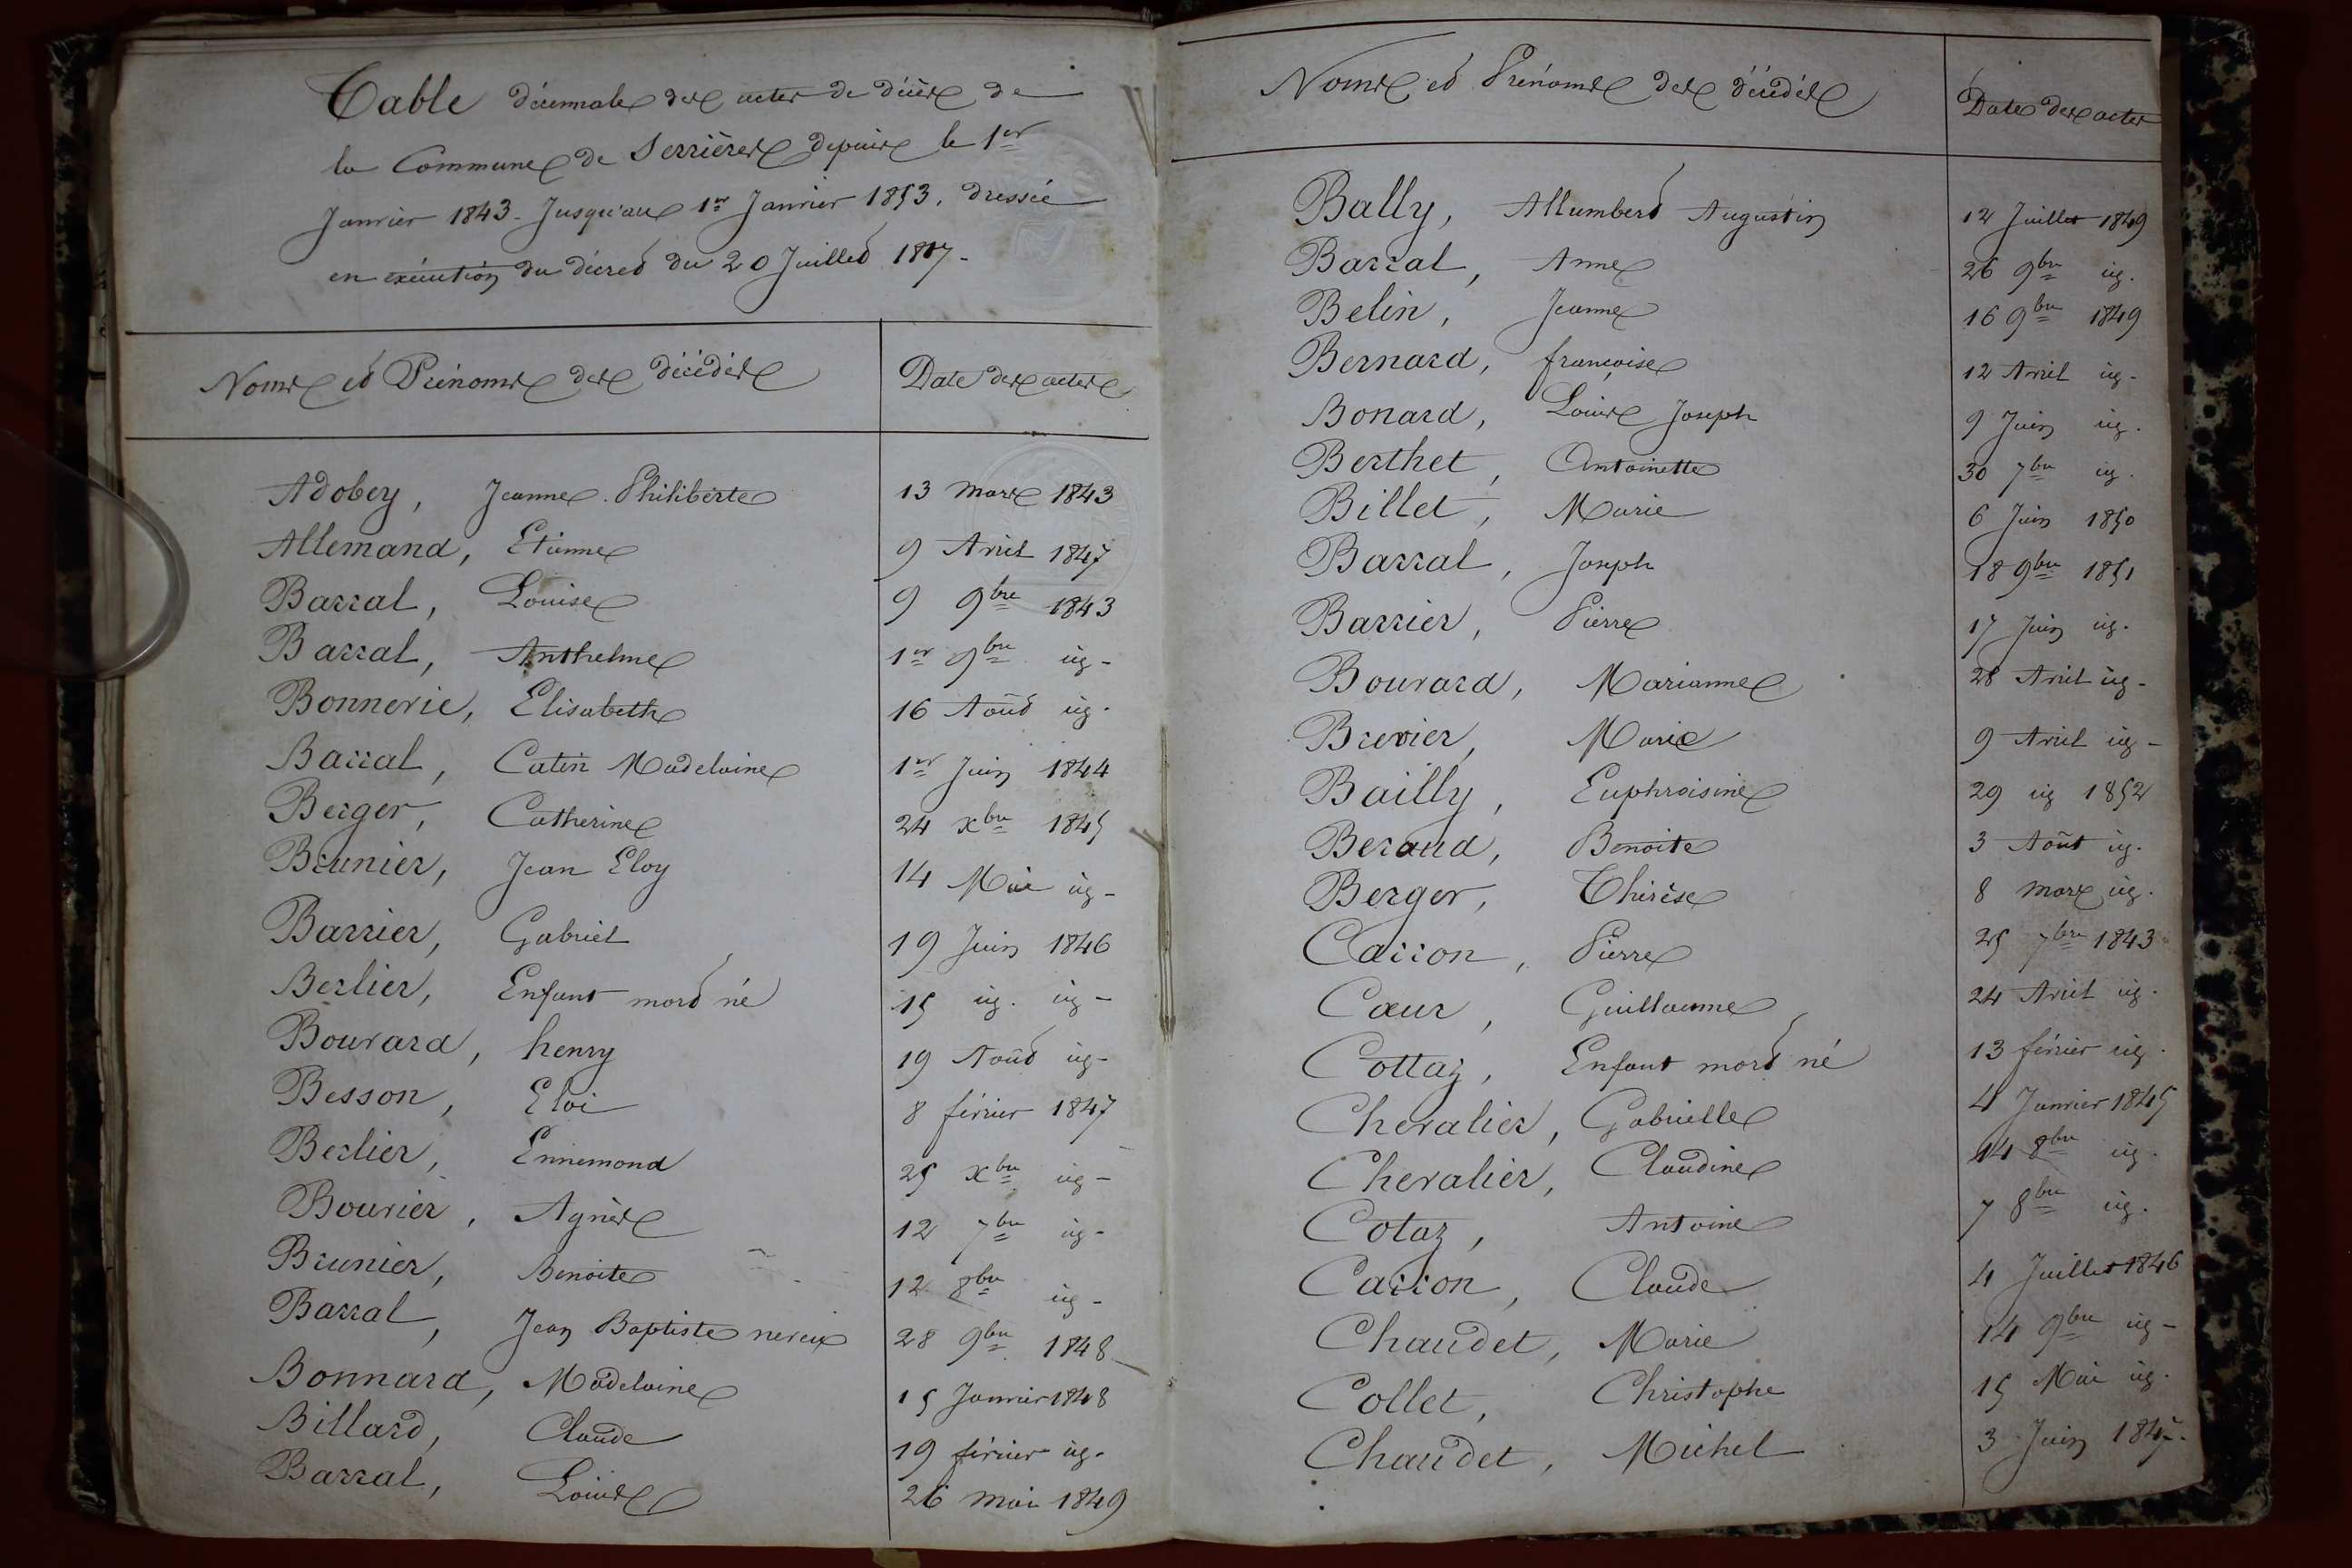 Table décennale des actes de décès de
la Commune de Serrières depuis le 1er
Janvier 1843. Jusqu'au 1er Janvier 1853, dressée
en exécution du décret du 20 Juillet 1807.
Noms et Prénoms des décédés Date des actes
Adobey, Jeanne Philiberte 13 Mars 1843
Allemand, Etienne 9 Avril 1847
Barral, Louise 9 9bre 1843
Barral, Anthelme 1er 9bre id.
Bonnerie, Elisabeth 16 Août id.
Barral, Catin Madelaine 1er Juin 1844
Berger, Catherine 24 Xbre 1845
Brunier, Jean Eloy 14 Mai id.
Barrier, Gabriel 19 Juin 1846
Berlier, Enfant mort né 15 id. id.
Bouvard, henry 19 Août id.
Besson, Eloi 8 février 1847
Berlier, Ennemond 25 Xbre id.
Bouvier, Agnès 12 7bre id.
Brunier, Benoite 12 8bre id.
Barral, Jean Baptiste 28 9bre 1848
Bonnard, Madelaine 15 Janvier 1848
Billard, Claude 19 février id.
Barral, Louis 26 Mai 1849
Noms et Prénoms des décédés Date des actes
Bally, Allumbert Augustin 12 Juillet 1849
Barral, Anne 26 9bre id.
Belin, Jeanne 16 9bre 1849
Bernard, françoise 12 Avril id.
Bonard, Louis Joseph 9 Juin id.
Berthet, Antoinette 30 7bre id.
Billet, Marie 6 Juin 1850
Barral, Joseph 18 9bre 1851
Barrier, Pierre 17 Juin id.
Bouvard, Marianne 28 Avril id.
Brevier, Marie 9 Avril id.
Bailly, Euphroisine 29 id 1852
Beraud, Benoite 3 Août id.
Berger, Thérèse 8 Mars id.
Carron, Pierre 25 7bre 1843
Cœur, Guillaume 24 Avril id.
Cottaz, Enfant mort né 13 février id.
Chevalier, Gabrielle 4 Janvier 1845
Chevalier, Claudine 14 8bre id.
Cotaz, Antoine 7 8bre id.
Carron, Claude 4 Juillet 1846
Chaudet, Marie 14 9bre id.
Collet, Christophe 15 Mai id.
Chaudet, Michel 3 Juin